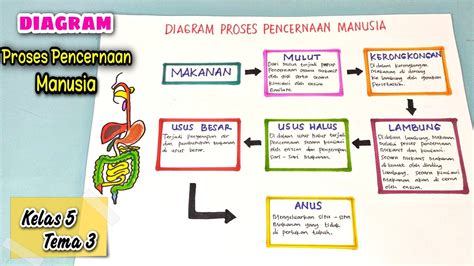 DIAGRAM
Proses Pencernaan
Manusia
DIAGRAM PROSES PENCERNAAN MANUSIA
MAKANAN
MULUT
Dari mulut terjadi proses
Pencernaan secara mekanik
oleh gigi serta secara
kimiawi oleh enzim
KERONGKONGAN
Di dalam kerongkongan
Makanan di dorong
ke lambung oleh gerakan
Peristaltik.
LAMBUNG
Di dalam lambung, Makanan
Melalui proses pencernaan
Mekanik dan kimiawi.
Secara Mekanik Makanan
di cerna oleh dinding
lambung, secara kimiawi
Makanan akan di cerna
oleh enzim.
USUS HALUS
Di dalam usus halus terjadi
Pencernaan secara kimiawi
oleh enzim dan penyerapan
Sari - Sari Makanan.
USUS BESAR
Terjadi penyerapan air
dan pembentukan Makanan
usus besar.
ANUS
Mengeluarkan sisa - sisa
Makanan yang tidak
di perlukan tubuh.
Kelas 5
Tema 3